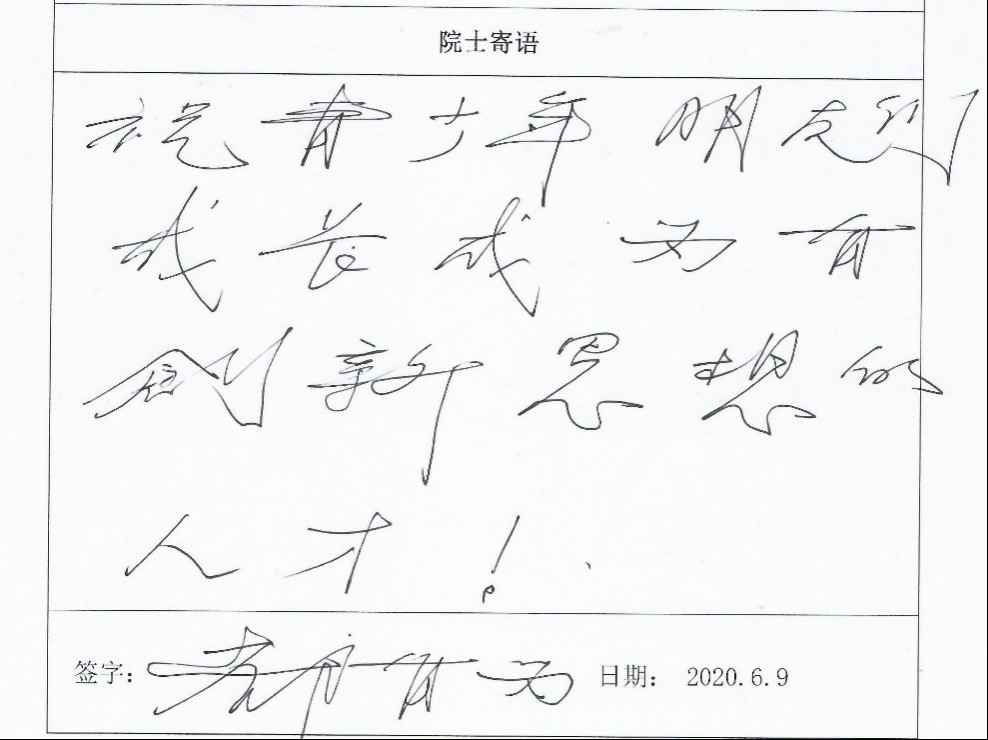 院士寄语
祝青少年朋友们
成长成为有
创新思想的
人才！
签字：都有为 日期： 2020.6.9